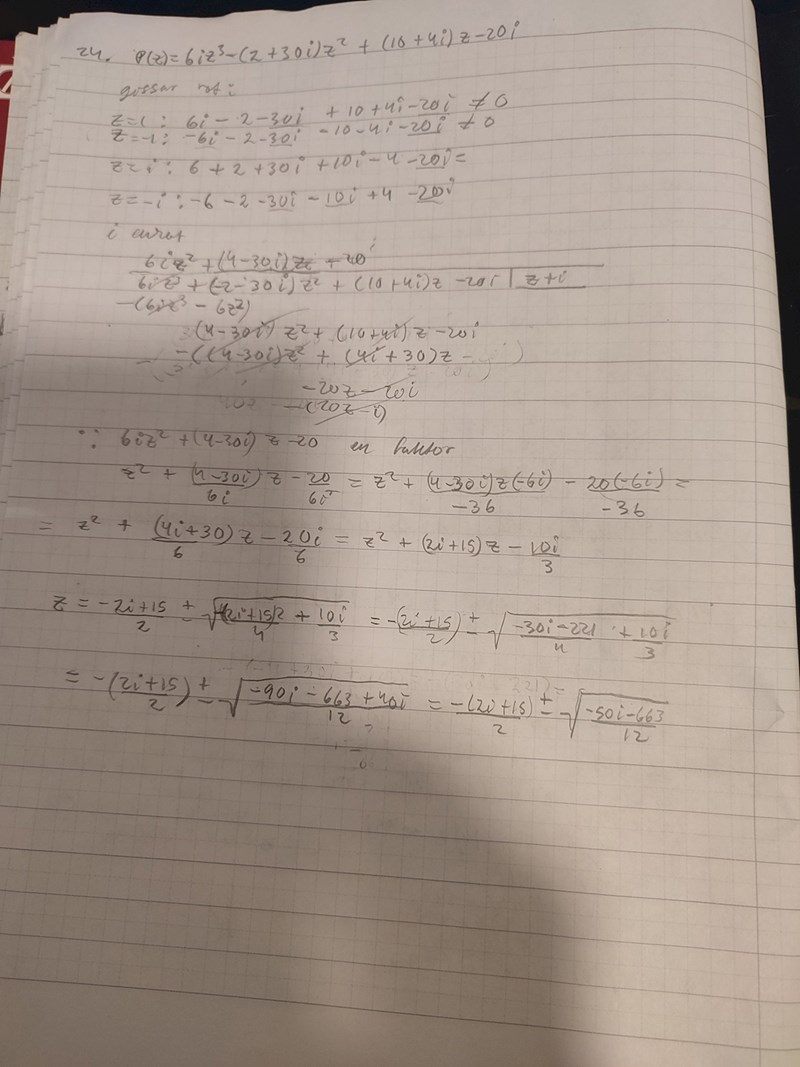 24. P(z) = 6iz³ - (2 + 30i)z² + (10 + 4i)z - 20i
gissar rot:
z=1: 6i - 2 - 30i + 10 + 4i - 20i ≠ 0
z=-1: -6i - 2 - 30i - 10 - 4i - 20i ≠ 0
z=i: 6 + 2 + 30i + 10i - 4 - 20i =
z=-i: -6 - 2 - 30i - 10i + 4 - 20i
i
6iz² + (4-30i)z - 20
6iz³ + (-2-30i)z² + (10+4i)z - 20i | z+i
-(6iz³ - 6z²)
(4-30i)z² + (10+4i)z - 20i
-((4-30i)z² + (4i+30)z
-20z - 20i
-(20z-i)
∴ 6iz² + (4-30i)z - 20 en faktor
z² + (4-30i)/6i z - 20/6i = z² + (4-30i)z(-6i)/-36 - 20(-6i)/-36 =
= z² + (4i+30)z/6 - 20i/6 = z² + (2i+15)z - 10i/3
z = -2i+15/2 ± √((2i+15)2/4 + 10i/3) = -(2i+15)/2 ± √(-30i-221/4 + 10i/3)
= -(2i+15)/2 ± √(-90i - 663 + 40i/12) = -(2i+15)/2 ± √(-50i-663/12)